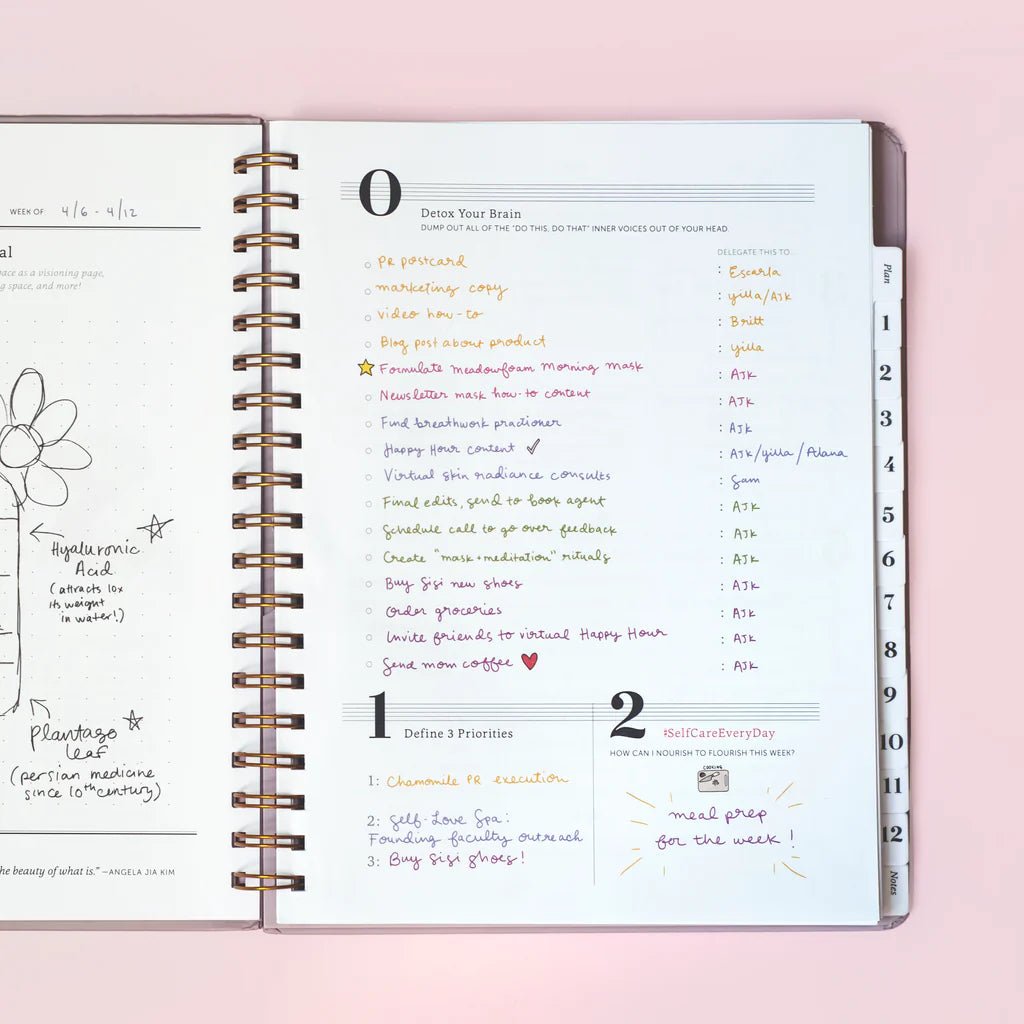 WEEK OF 4/6 - 4/12
al
pace as a visioning page,
g space, and more!
Hyaluronic
Acid
(attracts 10x
its weight
in water!)
Plantago
leaf
(persian medicine
since 10th century)
he beauty of what is." —ANGELA JIA KIM
0
Detox Your Brain
DUMP OUT ALL OF THE "DO THIS, DO THAT" INNER VOICES OUT OF YOUR HEAD.
DELEGATE THIS TO...
PR postcard : Escarla
marketing copy : yilla/AJK
video how-to : Britt
Blog post about product : yilla
Formulate meadowfoam Morning Mask : AJK
Newsletter mask how-to content : AJK
Find breathwork practioner : AJK
Happy Hour content ✓ : AJK/yilla/Alana
Virtual skin radiance consults : Sam
Final edits, send to book agent : AJK
Schedule call to go over feedback : AJK
Create "mask+meditation" rituals : AJK
Buy Sisi new shoes : AJK
Order groceries : AJK
Invite friends to virtual Happy Hour : AJK
Send mom coffee : AJK
1
Define 3 Priorities
1: Chamomile PR execution
2: Self-Love Spa:
Founding faculty outreach
3: Buy Sisi Shoes!
2
#SelfCareEveryDay
HOW CAN I NOURISH TO FLOURISH THIS WEEK?
COOKING
meal prep
for the week!
Plan
1
2
3
4
5
6
7
8
9
10
11
12
Notes